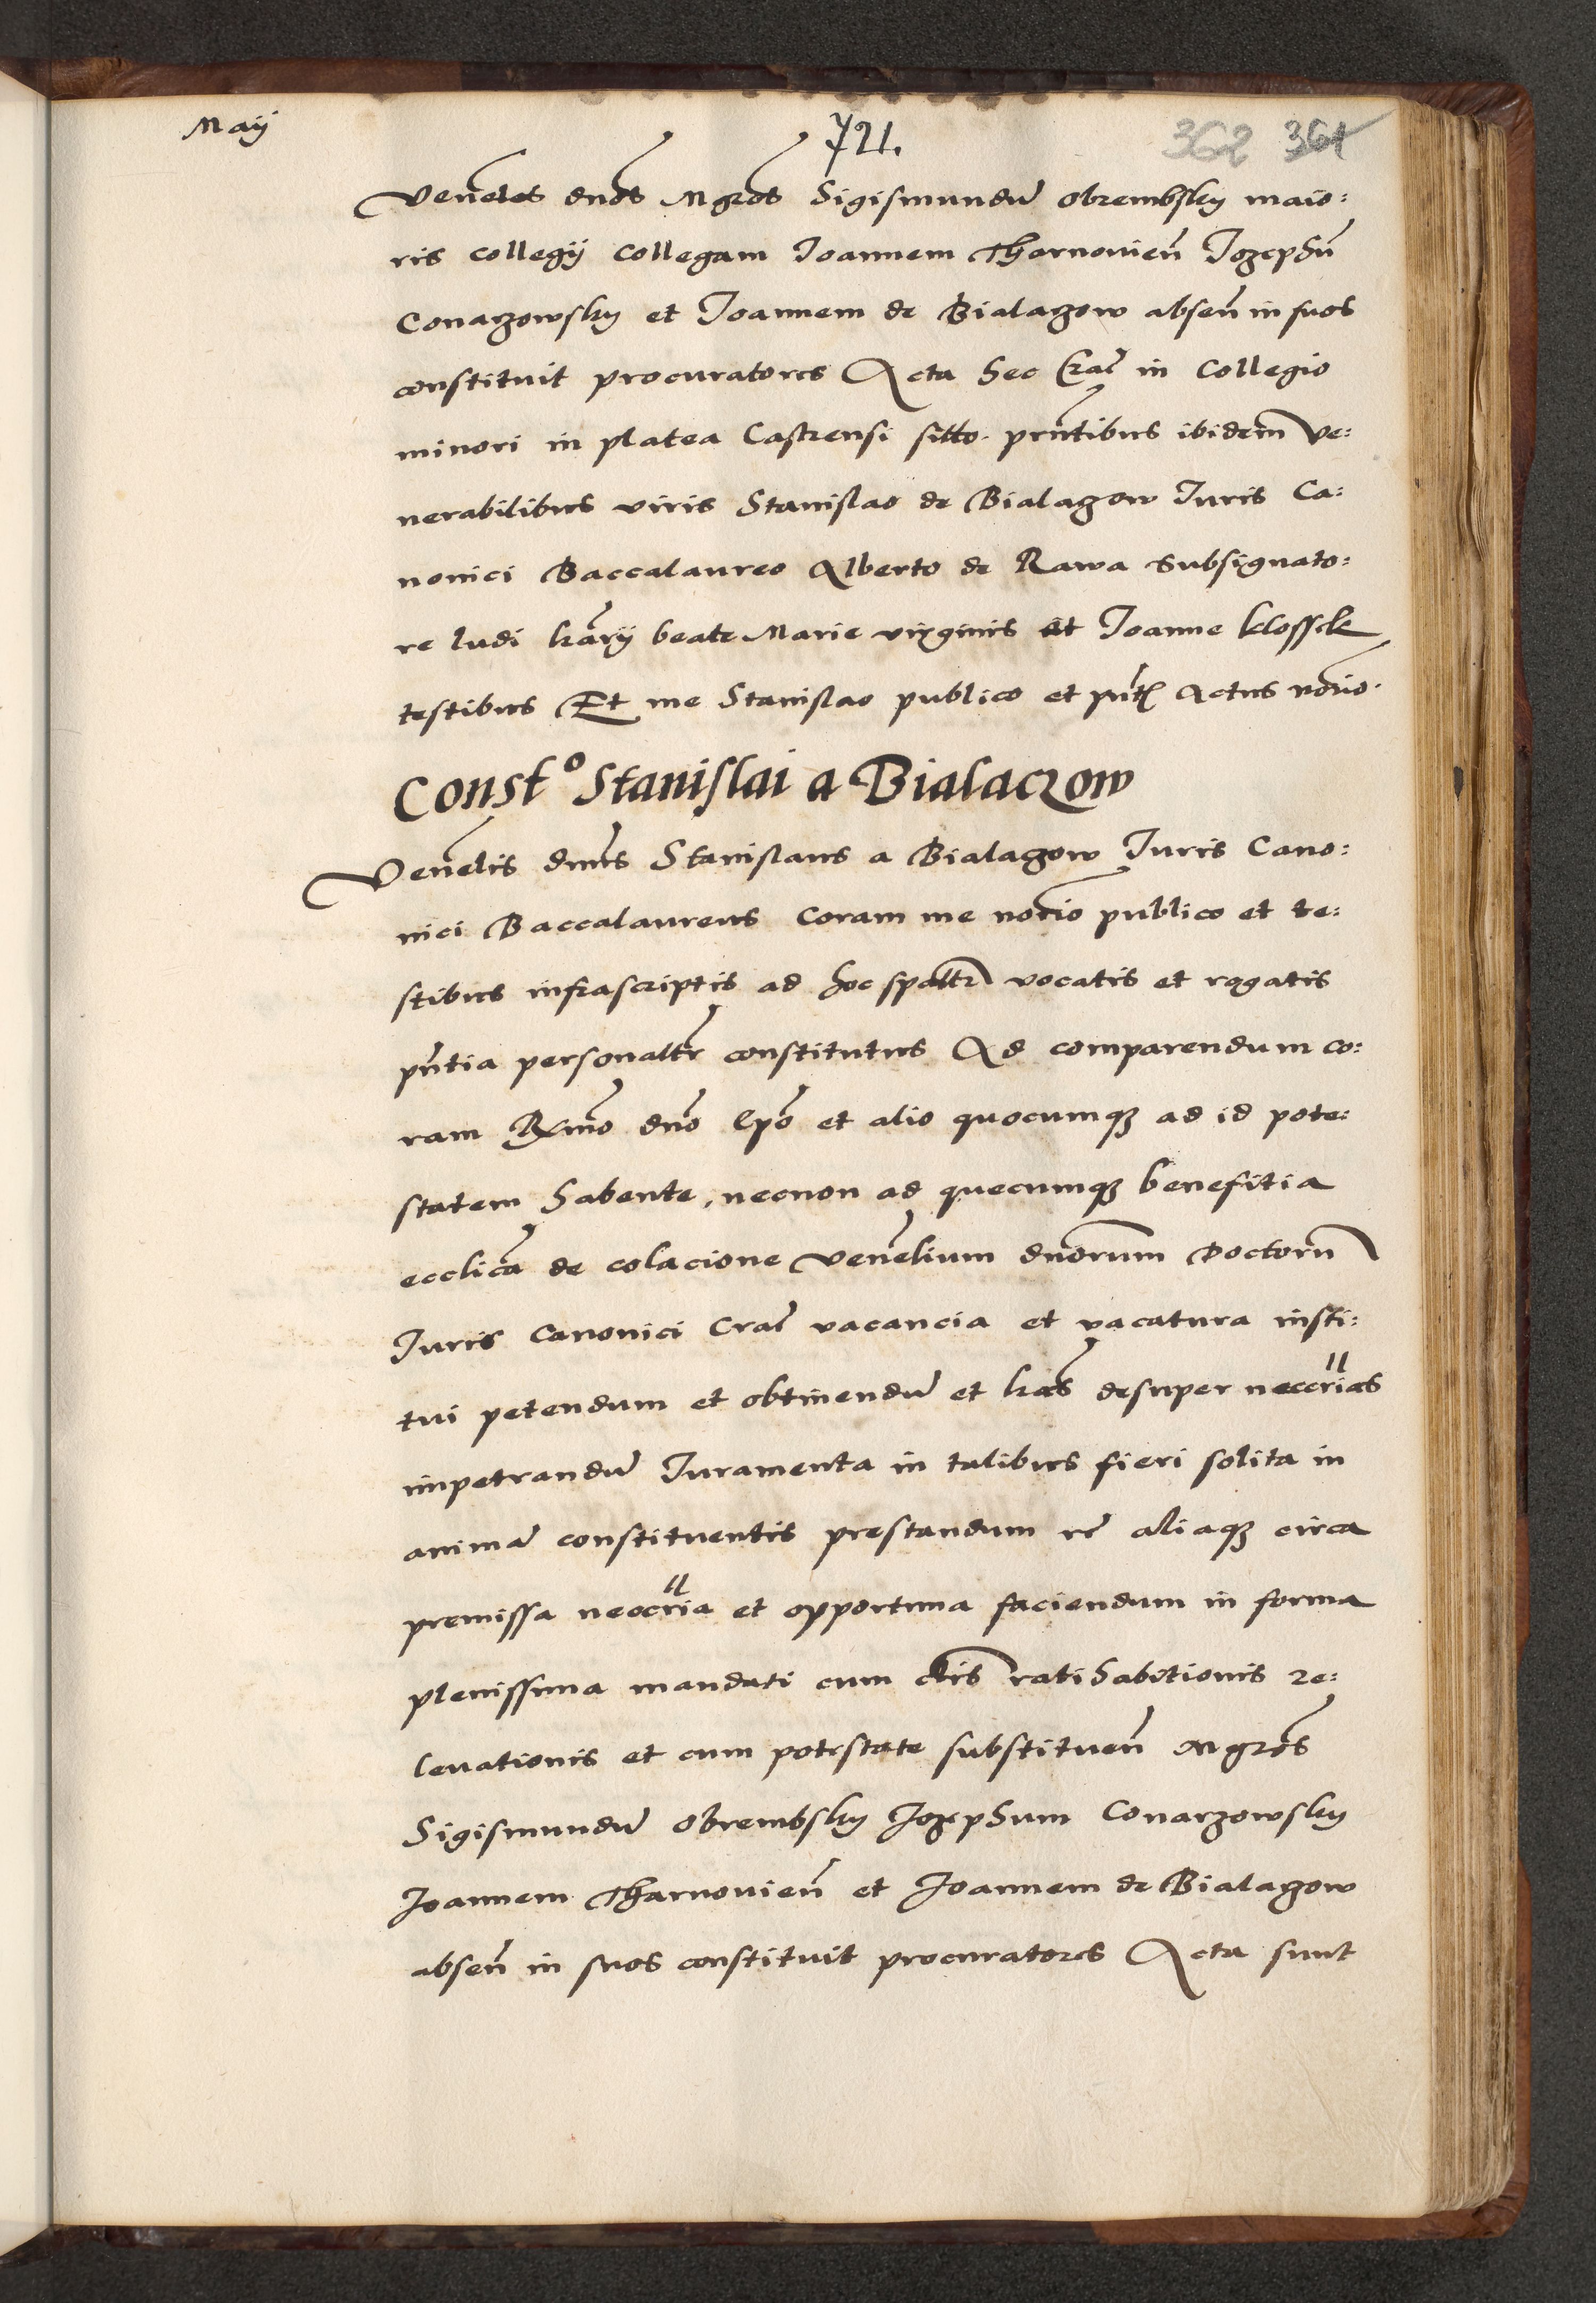 Maij
721.
362 361
Veneles dnos Mgros Sigismundū Obrembsky maio:
ris collegij collegam Ioannem Thornovien̄ Iozephū
Conarzowsky et Ioannem de Bialaczow absen̄ in suos
constituit procuratores Acta hec Crac̄ in Collegio
minori in platea Castrensi sitto. pn̄tibus ibidem ve:
nerabilibus viris Stanislao de Bialaczow Iuris Ca:
nonici Baccalaureo Alberto de Rawa subsignato:
re ludi beate Marie virginis et Ioanne Klossek
testibus Et me Stanislao publico et Actus nōrio.
Const° Stanislai a Bialaczow
Venēlis dnus Stanislaus a Bialaczow Iuris Cano:
nici Baccalaureus coram me nōrio publico et te:
stibus infrascriptis ad hoc spāltr vocatis et rogatis
pn̄tia personaltr constitutus Ad comparendum co:
ram Rxmo dno Epo et alio quocumqȝ ad id pote:
statem habente, necnon ad quecumqȝ benefitia
ecclica de colacione venelium dnorum Doctorū
Iuris Canonici Crac̄ vacancia et vacatura insti:
tui petendum et obtinendū et lr̄as desuper neccrias
impetrandū Iuramenta in talibus fieri solita in
animā constituentis prestandum rē aliaqȝ circa
premissa neccria et opportuna faciendum in forma
plenissima mandati cum clis ratihabitionis re:
levationis et cum potestate substituen̄ Mgros
Sigismundū Obrembsky Iozephum Conarzowsky
Ioannem Tharnovien̄ et Ioannem de Bialaczow
absen̄ in suos constituit procuratores Acta sunt